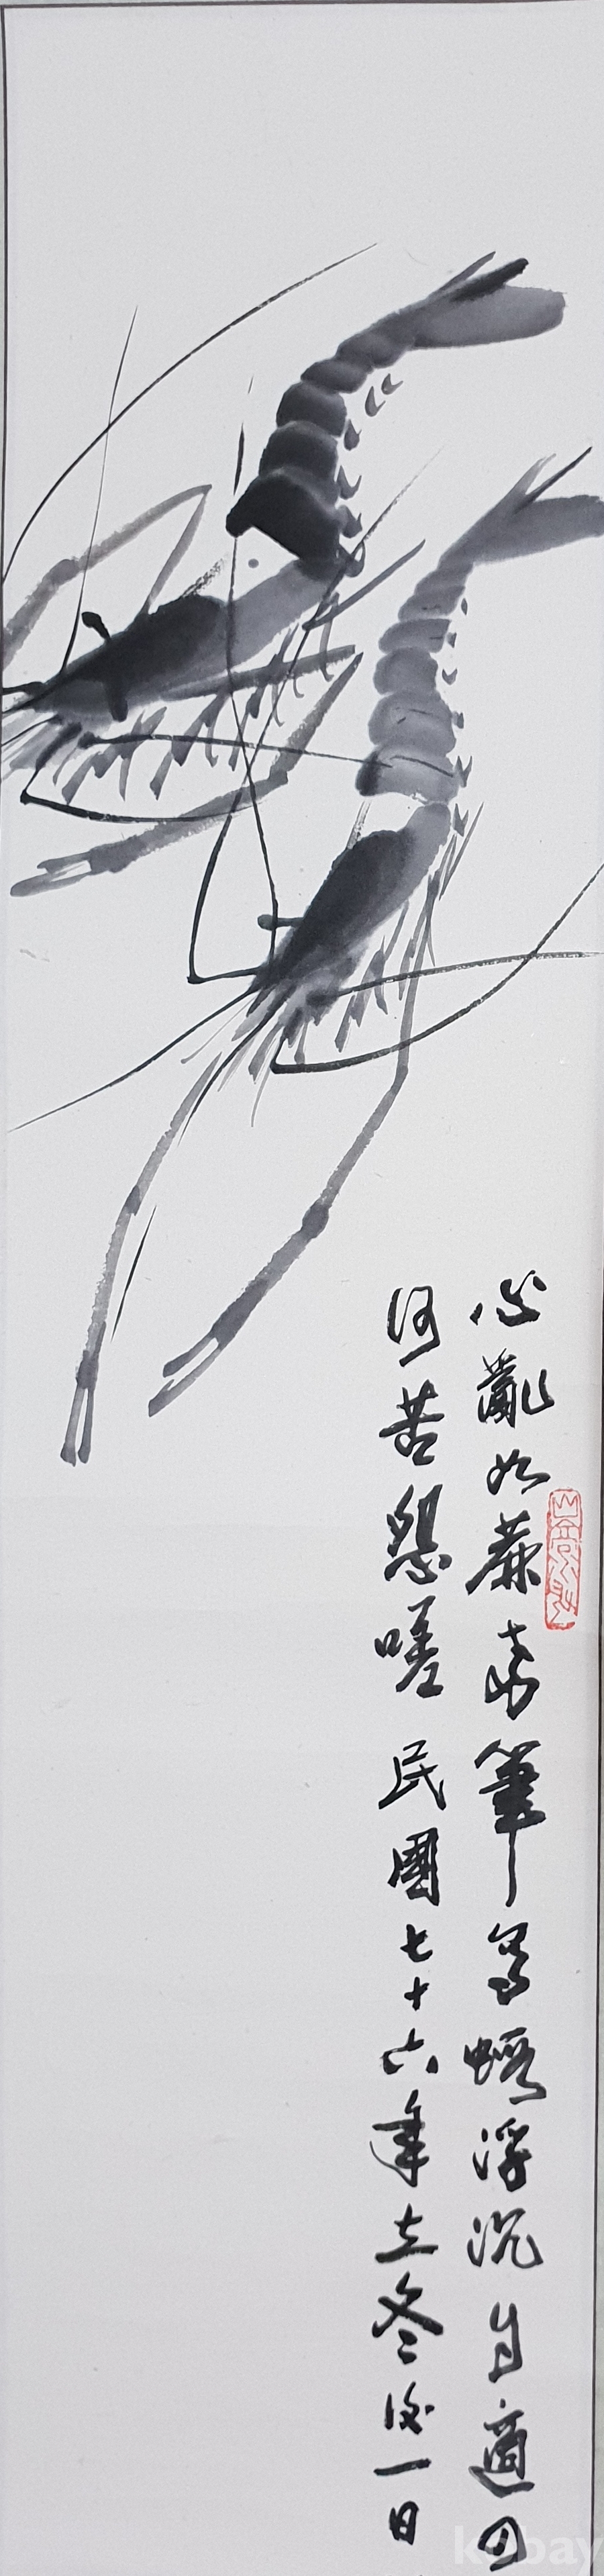 心亂如蔴筆寫蝦浮沉自適
何苦怨嗟 民國七十六年立冬後一日
kobay